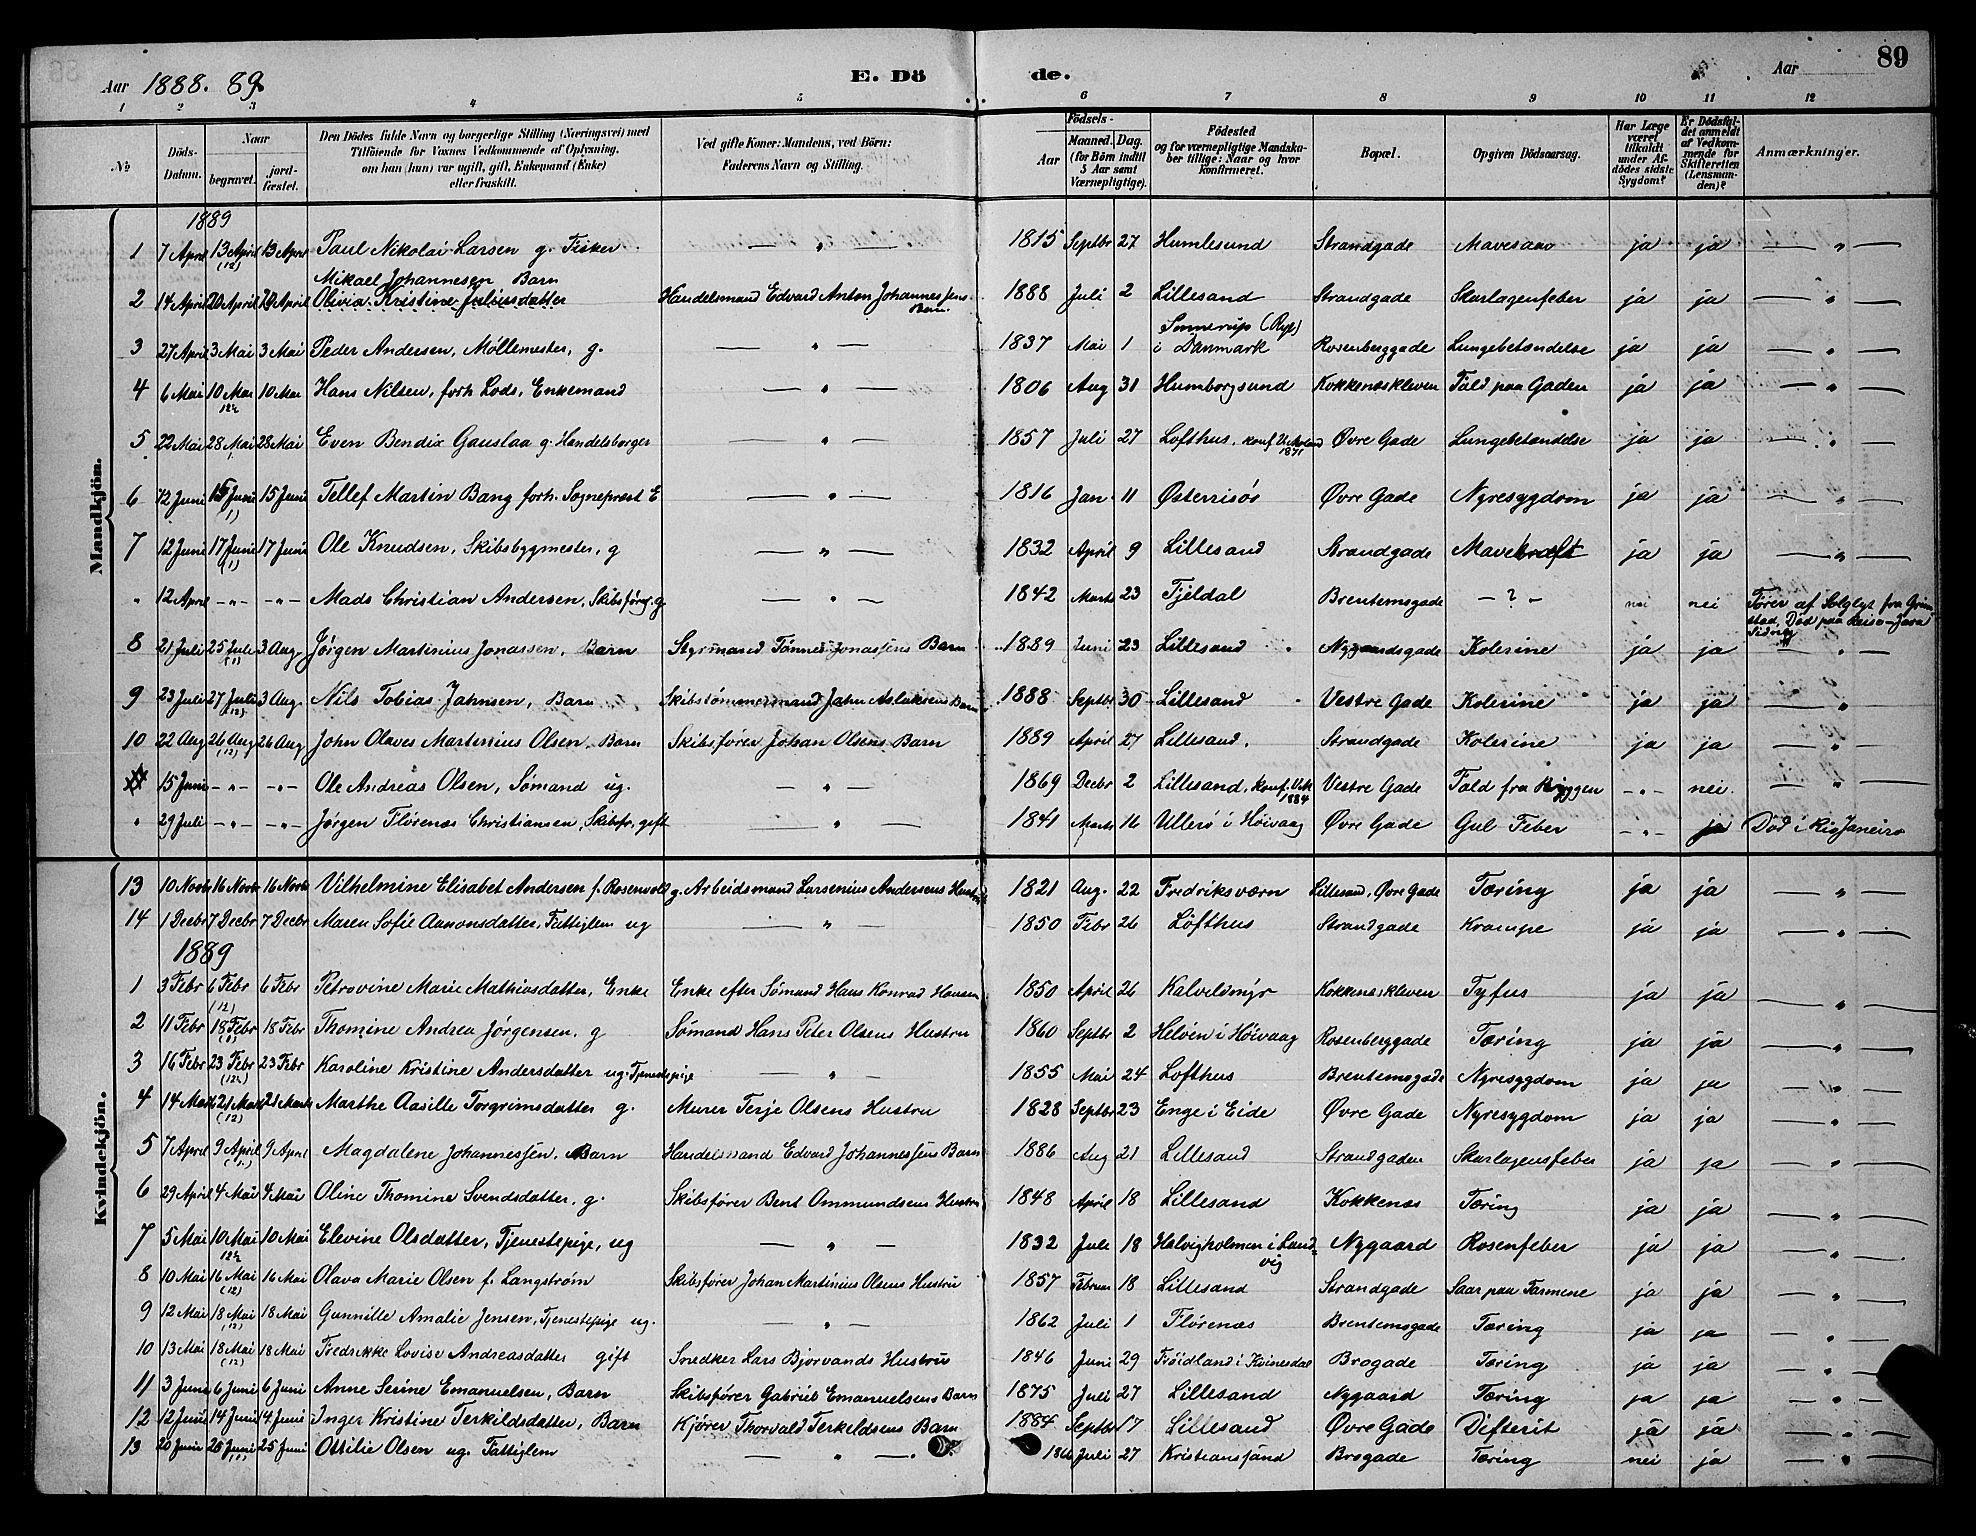 89
Aar 1888. 89.
E. Dö de.
Aar
1 2 3 4 5 6 7 8 9 10 11 12
No
Döds-Datum.
Naar begravet. jordfæstet.
Den Dödes fulde Navn og borgerlige Stilling (Næringsvei) med Tilföiende for Voxnes Vedkommende af Oplysning, om han (hun) var ugift, gift, Enkemand (Enke) eller fraskilt.
Ved gifte Koner: Mandens, ved Börn: Faderens Navn og Stilling.
Födsels-
Aar
Maaned. Dag. (for Börn indtil 5 Aar samt Værnepligtige).
Födested og for værnepligtige Mandskaber tillige: Naar og hvor konfirmeret.
Bopæl.
Opgiven Dödsaarsag.
Har Læge været tilkaldt under Afdödes sidste Sygdom?
Er Dödsfaldet anmeldt af Vedkommende for Skifteretten (Lensmanden)?
Anmærkninger.
Mandkjön.
1889
1 7 April 13 April (12) 13 April Paul Nikolai Larsen g. Fisker — " — 1815 Septbr 27 Humlesund Strandgade Mavesaar ja ja — " —
Mikael Johannesen Barn
2 14 April 20 April 20 April Olivia Kristine Juliusdatter Handelsmand Edvard Anton Johannessens Barn 1888 Juli 2 Lillesand Strandgade Skarlagenfeber ja ja — " —
3 27 April 3 Mai 3 Mai Peder Andersen, Møllemester, g. — " — 1837 Mai 1 Sonnerup (Rye) i Danmark Rosenberggade Lungebetændelse ja ja — " —
4 6 Mai 10 Mai 12½ 10 Mai Hans Nilsen, forh. Lods, Enkemand — " — 1806 Aug 31 Humborgsund Kokkenæskleven Fald paa Gaden ja ja — " —
5 22 Mai 28 Mai 28 Mai Even Bendix Gauslaa g. Handelsborger — " — 1857 Juli 27 Lofthus, konf. 1871 Øvre Gade Lungebetændelse ja ja — " —
6 12 Juni 15 Juni (1) 15 Juni Tellef Martin Bang forh. Sognepræst E — " — 1816 Jan. 11 Østerrisør Øvre Gade Nyresygdom ja ja — " —
7 12 Juni 17 Juni (1) 17 Juni Ole Knudsen, Skibsbygmester, g — " — 1832 April 9 Lillesand Strandgade Mavekræft ja ja — " —
" 12 April — " — — " — Mads Christian Andersen, Skibsførg. g. — " — 1842 Marts 23 Tjeldal Brentemsgade — ? — nei nei Fører af Solglyt fra Grimstad, Død paa Reise - Java Sidney
8 21 Juli 25 Juli (1) 3 Aug. Jørgen Martinius Jonassen, Barn Styrmand Tønnes Jonassens Barn 1889 Juni 23 Lillesand Nygaardsgade Kolerine ja ja — " —
9 23 Juli 27 Juli (12) 3 Aug. Nils Tobias Jahnsen, Barn Skibstømmermand Jahn Aslaksens Barn 1888 Septbr 30 Lillesand Vestre Gade Kolerine ja ja — " —
10 22 Aug 26 Aug (12) 26 Aug John Olaves Martinius Olsen, Barn Skibsfører Johan Olsens Barn 1889 April 27 Lillesand. Strandgade Kolerine ja ja — " —
15 Juni — " — — " — Ole Andreas Olsen, Sømand ug. — " — 1869 Decbr 2 Lillesand, konf. 1884 Vestre Gade Fald fra Bryggen — " — nei — " —
" 29 Juli — " — — " — Jørgen Flørenæs Christiansen, Skibsfr. gift — " — 1841 Marts 16 Ullerø i Høivaag Øvre Gade Gul Feber — " — ja Død i Rio Janeiro
Kvindekjön.
13 10 Novbr 16 Novbr 16 Novbr Vilhelmine Elisabet Andersen f. Rosenvold g. Arbeidsmand Larsenius Andersens Hustru 1821 Aug. 22 Fredriksværn Lillesand, Øvre Gade Tæring ja ja — " —
14 1 Decbr 7 Decbr 7 Decbr Maren Sofie Aanonsdatter, Fattiglem ug — " — 1850 Febr 26 Lofthus Strandgade Krampe ja ja — " —
1889
1 3 Febr 6 Febr (12) 6 Febr Petrovine Marie Mathiasdatter, Enke Enke efter Sømand Hans Konrad Hansen 1850 April 26 Kalveldmyr Kokkenæskleven Tyfus ja ja — " —
2 11 Febr 18 Febr (1) 18 Febr Thomine Andrea Jørgensen, g Sømand Hans Peter Olsens Hustru 1860 Septbr 2 Heløen i Høivaag Rosenberggade Tæring ja ja — " —
3 16 Febr 23 Febr (12½) 23 Febr Karoline Kristine Andersdatter ug. Tjenestepige — " — 1855 Mai 24 Lofthus Brentemsgade Nyresygdom ja ja — " —
4 14 Marts 21 Marts (12) 21 Marts Marthe Aasille Torgrimsdatter g. Murer Terje Olsens Hustru 1828 Septbr 23 Enge i Eide Øvre Gade Nyresygdom ja ja — " —
5 7 April 9 April 9 April Magdalene Johannessen, Barn Handelsmand Edvard Johannessens Barn 1886 Aug 21 Lillesand Strandgaden Skarlagensfeber ja ja — " —
6 29 April 4 Mai 4 Mai Oline Thomine Svendsdatter, g. Skibsfører Bent Ommundsens Hustru 1848 April 18 Lillesand Kokkenæs Tæring ja ja — " —
7 5 Mai 10 Mai 12½ 10 Mai Elevine Olsdatter, Tjenestepige, ug — " — 1832 Juli 18 Halvigholmen i Landvig Nygaard Rosenfeber ja ja — " —
8 10 Mai 16 Mai (12) 16 Mai Olava Marie Olsen f. Langstrøm Skibsfører Johan Martinius Olsens Hustru 1857 Februar 18 Lillesand Strandgade Saar paa Tarmene ja ja — " —
9 12 Mai 18 Mai (12) 18 Mai Gunnille Amalie Jensen, Tjenestepige ug. — " — 1862 Juli 1 Flørenæs Brentemsgade Tæring ja ja — " —
10 13 Mai 18 Mai (12) 18 Mai Fredrikke Lovise Andreasdatter gift Snedker Lars Bjorvands Hustru 1846 Juni 29 Frøidland i Kvinesdal Brogade Tæring ja ja — " —
11 3 Juni 6 Juni 6 Juni Anne Serine Emanuelsen, Barn Skibsfører Gabriel Emanuelsens Barn 1875 Juli 27 Lillesand Nygaard Tæring ja ja — " —
12 12 Juni 14 Juni 14 Juni Inger Kristine Terkildsdatter, Barn Kjører Thorvald Terkeldsens Barn 1884 Septbr 17 Lillesand Øvre Gade Difterit ja ja — " —
13 20 Juni 25 Juni (1) 25 Juni Ottilie Olsen ug. Fattiglem — " — 1866 Juli 27 Kristianssand Brogade Tæring nei ja — " —